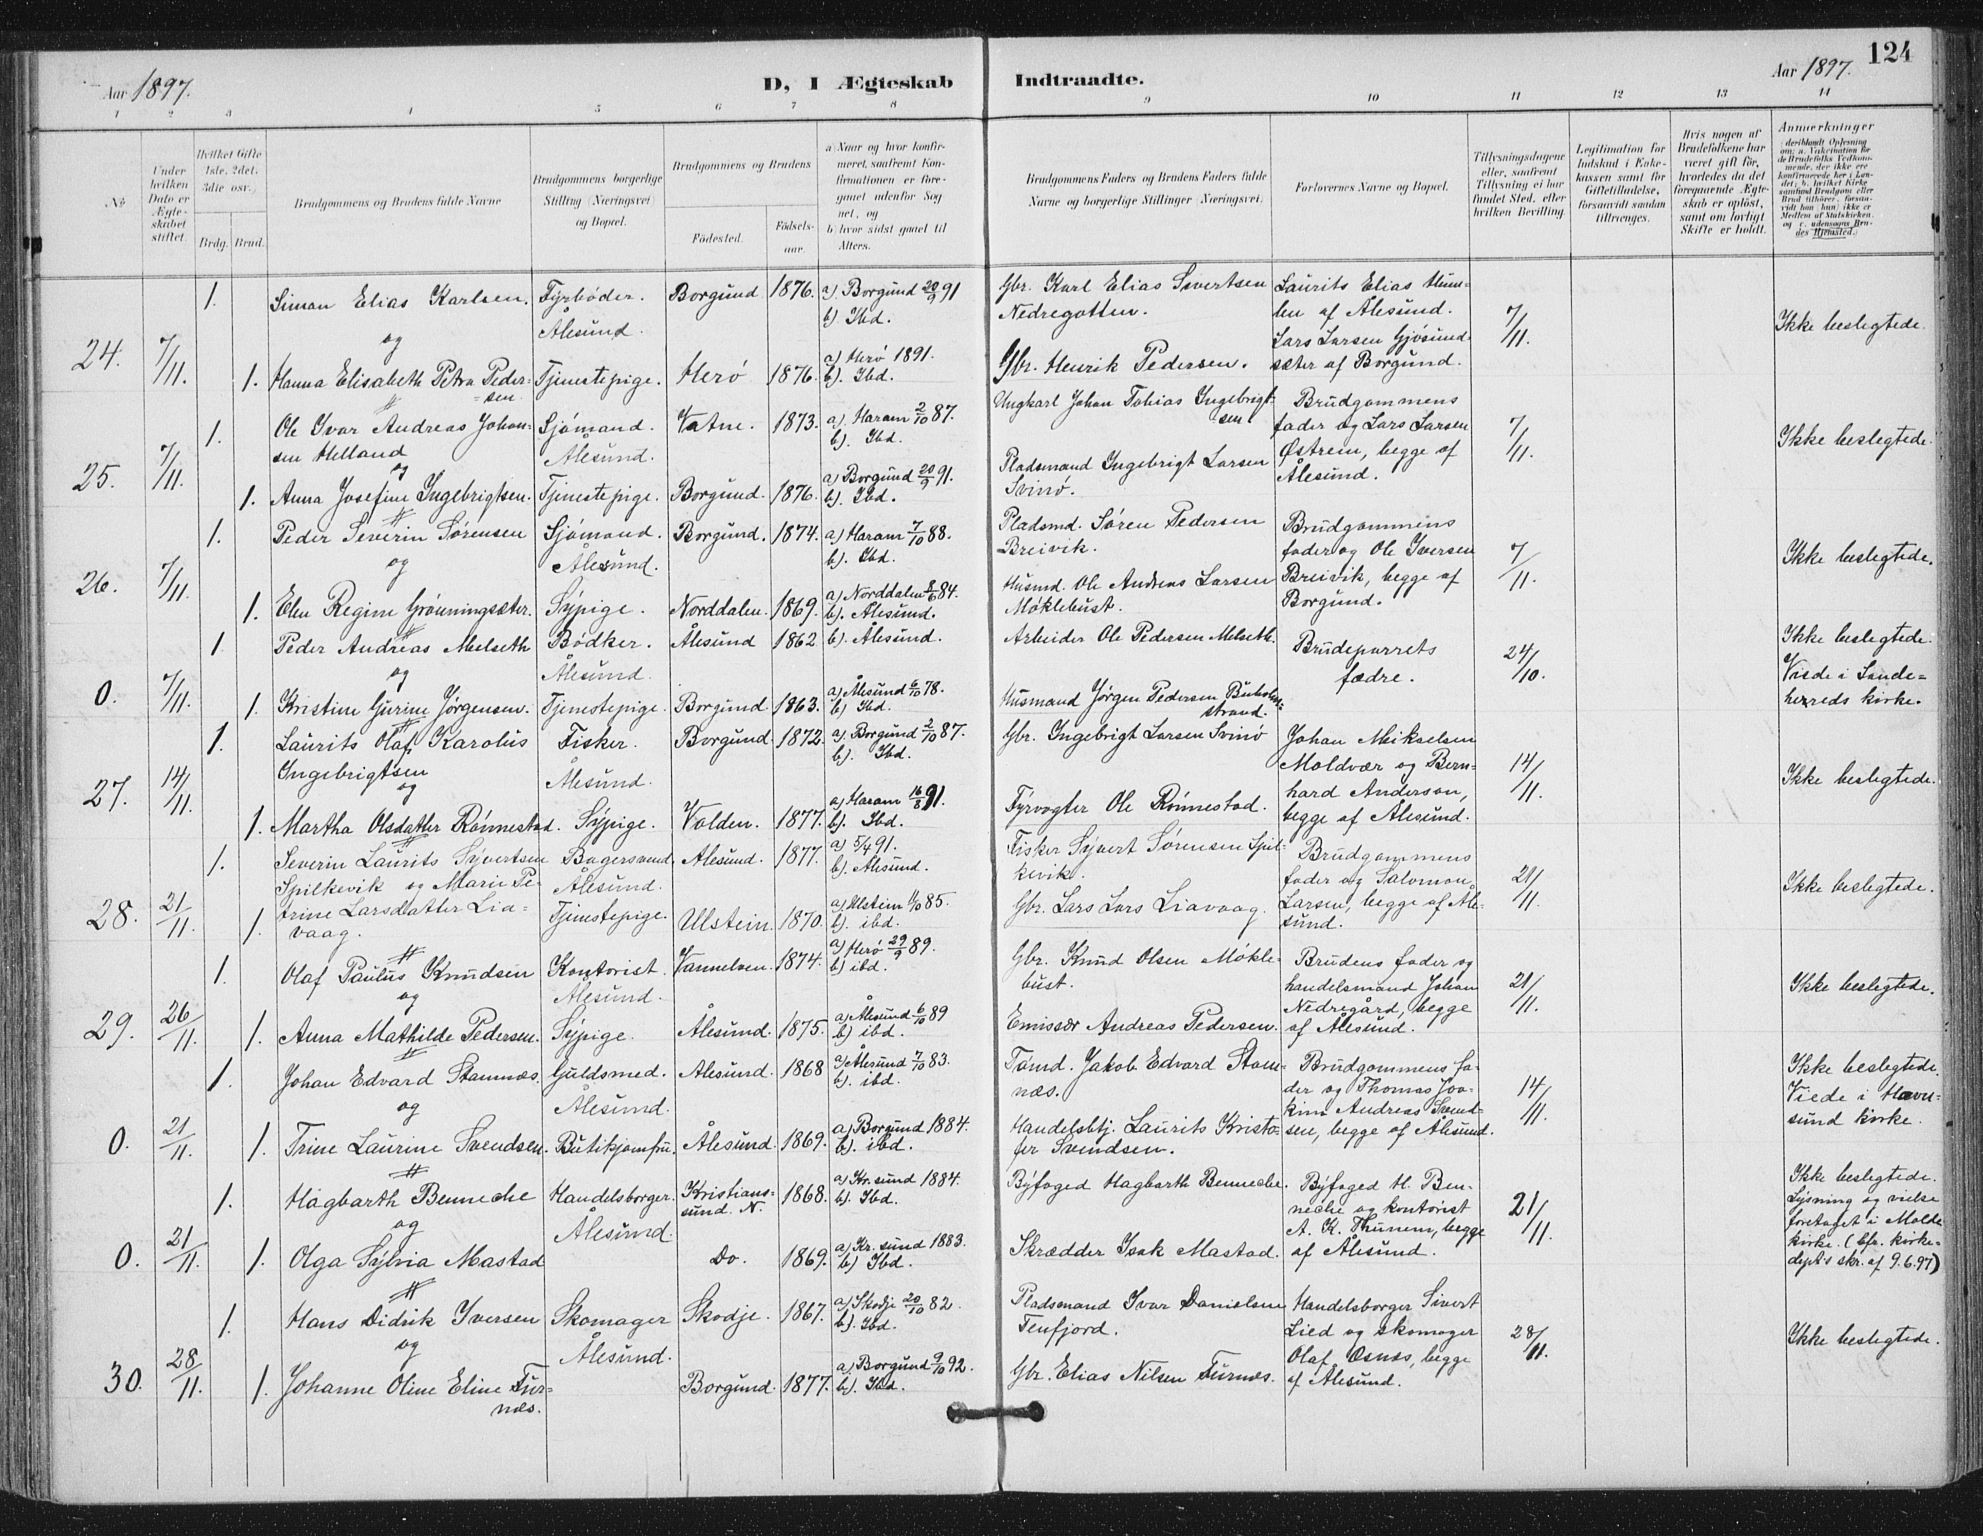 124
Aar 1897.
D, I Ægteskab Indtraadte.
Aar 1897.
1 2 3 4 5 6 7 8 9 10 11 12 13 14
No
Under hvilken Dato er Ægteskabet stiftet.
Hvilket Gifte 1ste, 2det, 3die osv.)
Brdg. Brud.
Brudgommens og Brudens fulde Navne
Brudgommens borgerlige Stilling (Næringsvei) og Bopæl.
Brudgommens og Brudens
Fødested. Fødselsaar.
a) Naar og hvor konfirmeret, saafremt Konfirmationen er foregaaet udenfor Sognet, og
b) hvor sidst gaaet til Alters.
Brudgommens Faders og Brudens Faders fulde Navne og borgerlige Stillinger (Næringsvei)
Forlovernes Navne og Bopæl.
Tillysningsdagene eller, saafremt Tillysning ei har fundet Sted, efter hvilken Bevilling.
Legitimation for Indskud i Enkekassen samt for Giftetilladelse, forsaavidt saadan tiltrænges.
Hvis nogen af Brudefolkene har været gift før, hvorledes da det foregaaende Ægteskab er opløst, samt om lovligt Skifte er holdt.
Anmerkninger
24. 7/11. 1. Simon Elias Karlsen. Fyrbøder. Borgund 1876. a). Borgund 20/9 91 Gbr. Karl Elias Sivertsen Laurits Elias Hum- 7/11. Ikke beslegtede.
og Ålesund. b). Ibd. Nedregotten. len af Ålesund.
Lars Larsen Gjøsund-
1. Hanna Elisabeth Petra Peder- Tjenestepige. Herø 1876. a) Herø 1891. Gbr. Henrik Pedersen. sæter af Borgund.
=sen b). Ibd.
25. 7/11. 1. Ole Ivar Andreas Johan- Sjømand. Vatne. 1873. a) Haram 2/10 87. Ungkarl Johan Tobias Ingebrigt- Brudgommens 7/11. Ikke beslegtede.
sen Helland Ålesund. b). Ibd. sen fader og Lars Larsen
og Pladsmand Ingebrigt Larsen Østrem, begge af
1. Anna Josefine Ingebrigtsen. Tjenestepige. Borgund. 1876. a) Borgund 20/9 91. Svinø. Ålesund.
b). Ibd.
26. 7/11. 1. Peder Severin Sørensen Sjømand. Borgund. 1874. a) Haram 7/10 88. Pladsmd. Søren Pedersen Brudgommens 7/11. Ikke beslegtede.
og Ålesund. b). Ibd. Breivik. fader og Ole Iversen
Husmd. Ole Andreas Larsen Breivik, begge af
1. Elen Regine Grønningsæter. Sypige. Norddalen. 1869. a) Norddalen 84. Møklebust. Borgund.
b). Ålesund.
0. 7/11. 1 Peder Andreas Melseth Bødker. Ålesund 1862 b). Ålesund. Arbeider Ole Pedersen Melseth. Brudeparrets 24/10. Ikke beslegtede.
og Ålesund. fædre. Viede i Sande=
1. Kristine Gurine Jørgensen. Tjenestepige. Borgund. 1863. a) Ålesund 6/10 78. Husmand Jørgen Pedersen herreds kirke.
b) Ibd. strand.
27. 14/11. 1. Laurits Olaf Karolus Fisker. Borgund. 1872. a) Borgund 2/10 87. Gbr. Ingebrigt Larsen Svinø Johan Mikaelsen 14/11. Ikke beslegtede.
Ingebrigtsen Ålesund. b). Ibd. Moldvær og Bern=
og hard Anderson,
1. Martha Olsdatter Rønnestad. Sypige. Volden. 1877. a) Haram 16/8 91. Fyrvogter Ole Rønnestad. begge af Ålesund.
b). Ibd.
28. 21/11. 1. Severin Laurits Syvertsen Bagersvend. Ålesund. 1877. a) 5/4 91. Fisker Syvert Sørensen Spil- Brudgommens 21/11. Ikke beslegtede.
Spilkevik og Marie Pe- Ålesund. b). Ålesund. kevik. fader og Salomon
1. trine Larsdatter Lia- Tjenestepige. Ulstein. 1870. a) Ulstein 85. Gbr. Lars Lars Liavaag. Larsen, begge af Åle-
vaag. b). ibd. sund.
29. 26/11. 1. Olaf Paulus Knudsen Kontorist. Vannelven. 1874. a) Herø 29/9 89. Gbr. Knud Olsen Møkle- Brudens fader og 21/11. Ikke beslegtede.
og Ålesund. b) ibd. bust. handelsmand Johan
Nedregård, begge
1. Anna Mathilde Pedersen. Sypige. Ålesund. 1875. a) Ålesund 6/10 89 Emissær Andreas Pedersen. af Ålesund.
b) ibd.
0. 21/11. 1. Johan Edvard Stamnæs. Guldsmed. Ålesund. 1868 a) Ålesund 7/10 83. Tømd. Jakob Edvard Stam- Brudgommens fa- 14/11. Ikke beslegtede.
og Ålesund. b). ibd. næs. der og Thomas Joa- Viede i Hævn-
kim Andreas Svend- sund kirke.
1. Trine Laurine Svendsen. Butikjomfru. Ålesund. 1869. a) Borgund 1884. Handelsbtj. Laurits Kristo- sen, begge af Ålesund.
b). ibd. fer Svendsen.
0. 21/11. 1. Hagbarth Benneche Handelsborger. Kristians- 1868. a) Kr.sund 1884. Byfoged Hagbarth Benneche. Byfoged H. Ben- 21/11. Ikke beslegtede.
og Ålesund. sund. N. b). Ibd. neche og kontorist Lysning og vielse
A. K. Thunem, begge foretaget i Molde
1. Olga Sylvia Mastad Do. 1869. a) Kr.sund 1883. Skrædder Isak Mastad. af Ålesund. kirke. (Cfr. kirke-
b) Ibd. dept's skr. af 9.6.97)
30. 28/11. 1. Hans Didrik Iversen Skomager Skodje. 1867. a) Skodje 20/10 82. Pladsmand Ivar Danielsen Handelsborger Sivert 28/11. Ikke beslegtede.
og Ålesund. b). Ibd. Tenfjord. Lied og skomager
Olaf Osnes, begge
1. Johanne Oline Eline Fur= Borgund. 1877. a) Borgund 9/10 92. Gbr. Elias Nilsen Furnæs. af Ålesund.
næs. b). Ibd.